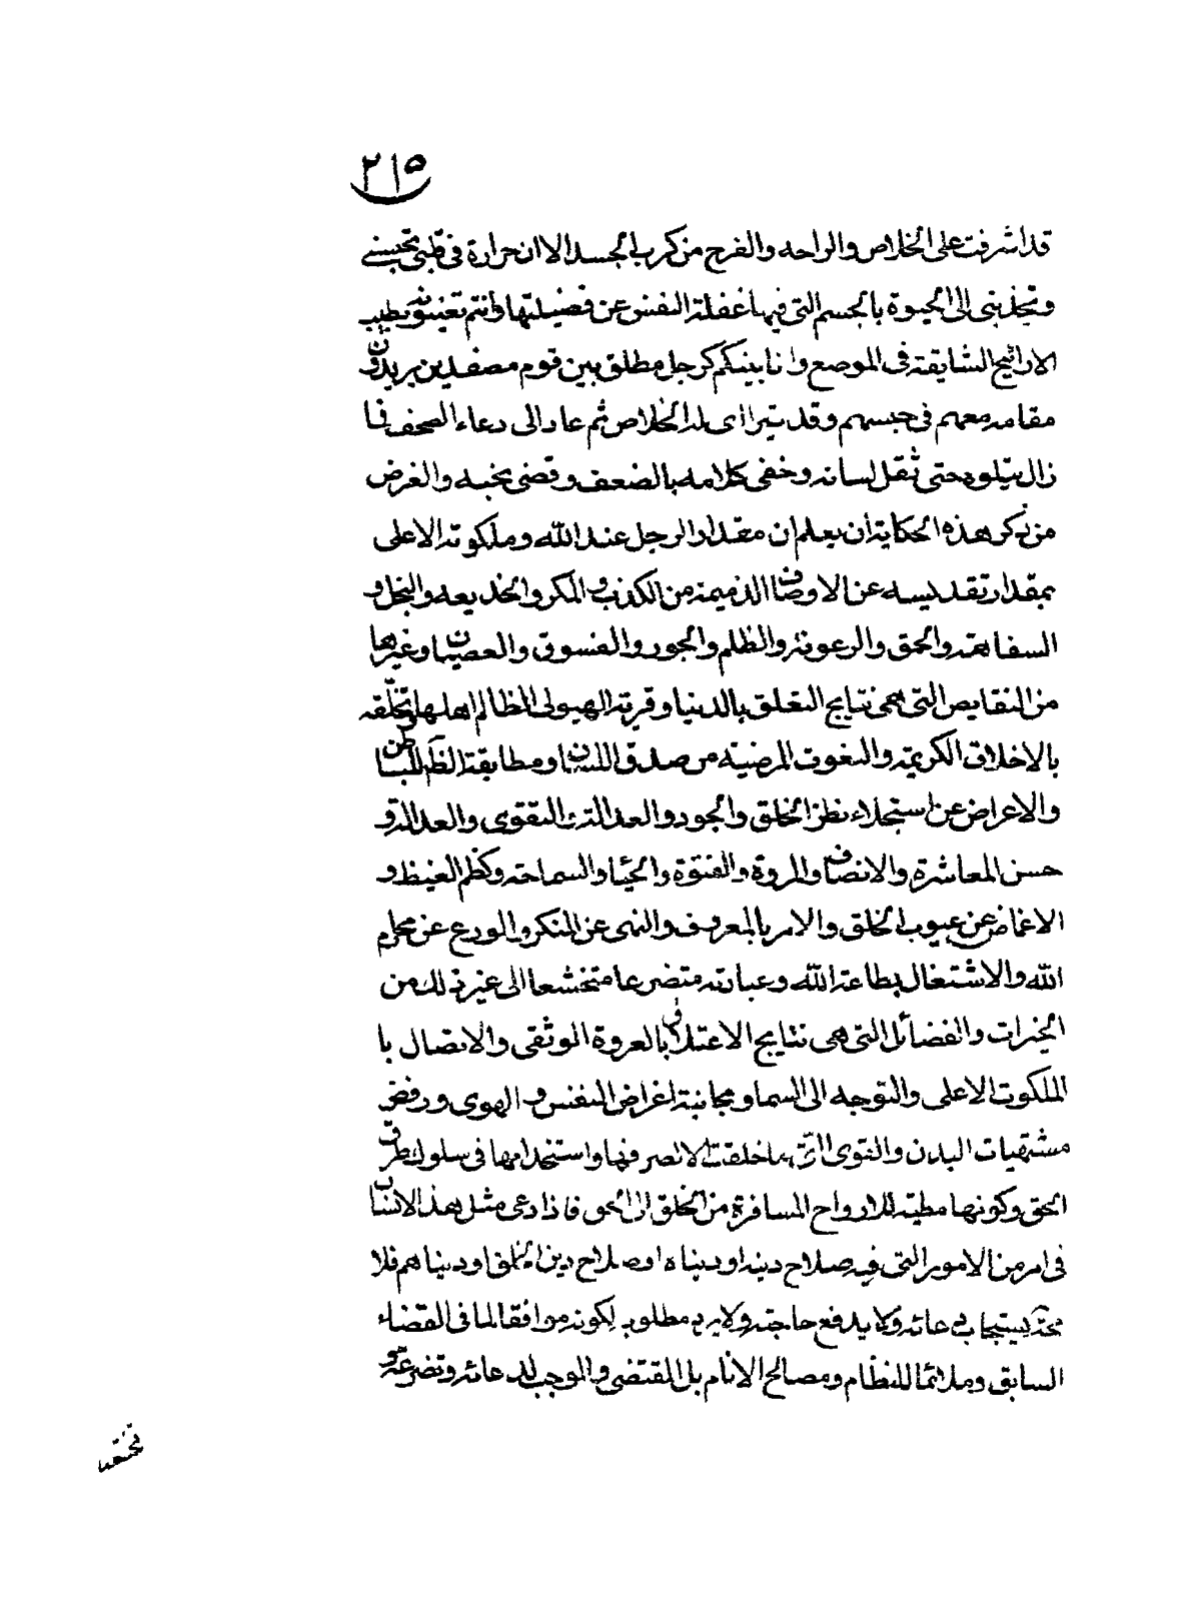 ٢١٥
قد اشرفت على الخلاص والراحه والفرح من كرب الجسد الا ان حرارة فى قلبى تحبسنے
وتجذبنى الى الحيوة بالجسم التى فيها غفلة النفس عن فضيلتها وانتم تغيثونه بطيب
الارائيح الشايقة فى الموضع وانا بينكم كرجل مطلق بين قوم مصفدين يريدون
مقامه معهم فى حبسهم وقد يتراأى له الخلاص ثم عاد الى دعاء الصحف فما
زال يتلوه حتى ثقل لسانه وخفى كلامه بالضعف وقضى نحبه والغرض
من ذكر هذه الحكاية ان يعلم ان مقدار الرجل عند الله وملكوته الاعلى
بمقدار تقديسه عن الاوصاف الذميمة من الكذب والمكر والخديعه والبخل و
السفاهة والحمق والرعونة والظلم والجور والفسوق والعصيان وغيرها
من النقايص التى هى نتايج التعلق بالدنيا وقرية الهيولى الظالم اهلها وتخلّقه
بالاخلاق الكريمة والنعوت المرضية من صدق اللسان ومطابقة الظاهر للباطن
والاعراض عن استجلاء نظر الخلق والجود والعدالة والتقوى والعدالة و
حسن المعاشرة والانصاف والمروة والفتوّة والحيا والسماحة وكظم الغيظ و
الاغماض عن عيوب الخلق والامر بالمعروف والنهى عن المنكر والورع عن محارم
الله والاشتغال بطاعة الله وعبادته متضرعا متخشعا الى غير ذلك من
الخيرات والفضائل التى هى نتايج الاعتلاق بالعروة الوثقى والاتصال با
الملكوت الاعلى والتوجه الى السما ومجانبة اغراض النفس و الهوى ورفض
مشتهيات البدن والقوى التى ما خلقت الا لتصرفها واستخدامها فى سلوك طريق
الحق وكونها مطية للارواح المسافرة من الخلق الى الحق فاذا دعى مثل هذا الانسان
فى امر من الامور التى فيه صلاح دينه او دنياه او صلاح دين الخلق او دنياهم فلا
محالة يستجاب دعائه ولا يدفع حاجته ولا يرد مطلوبه لكونه موافقا لما فى القضاء
السابق وملائما للنظام ومصالح الانام بل المقتضى والموجب لدعائه وتضرعه و